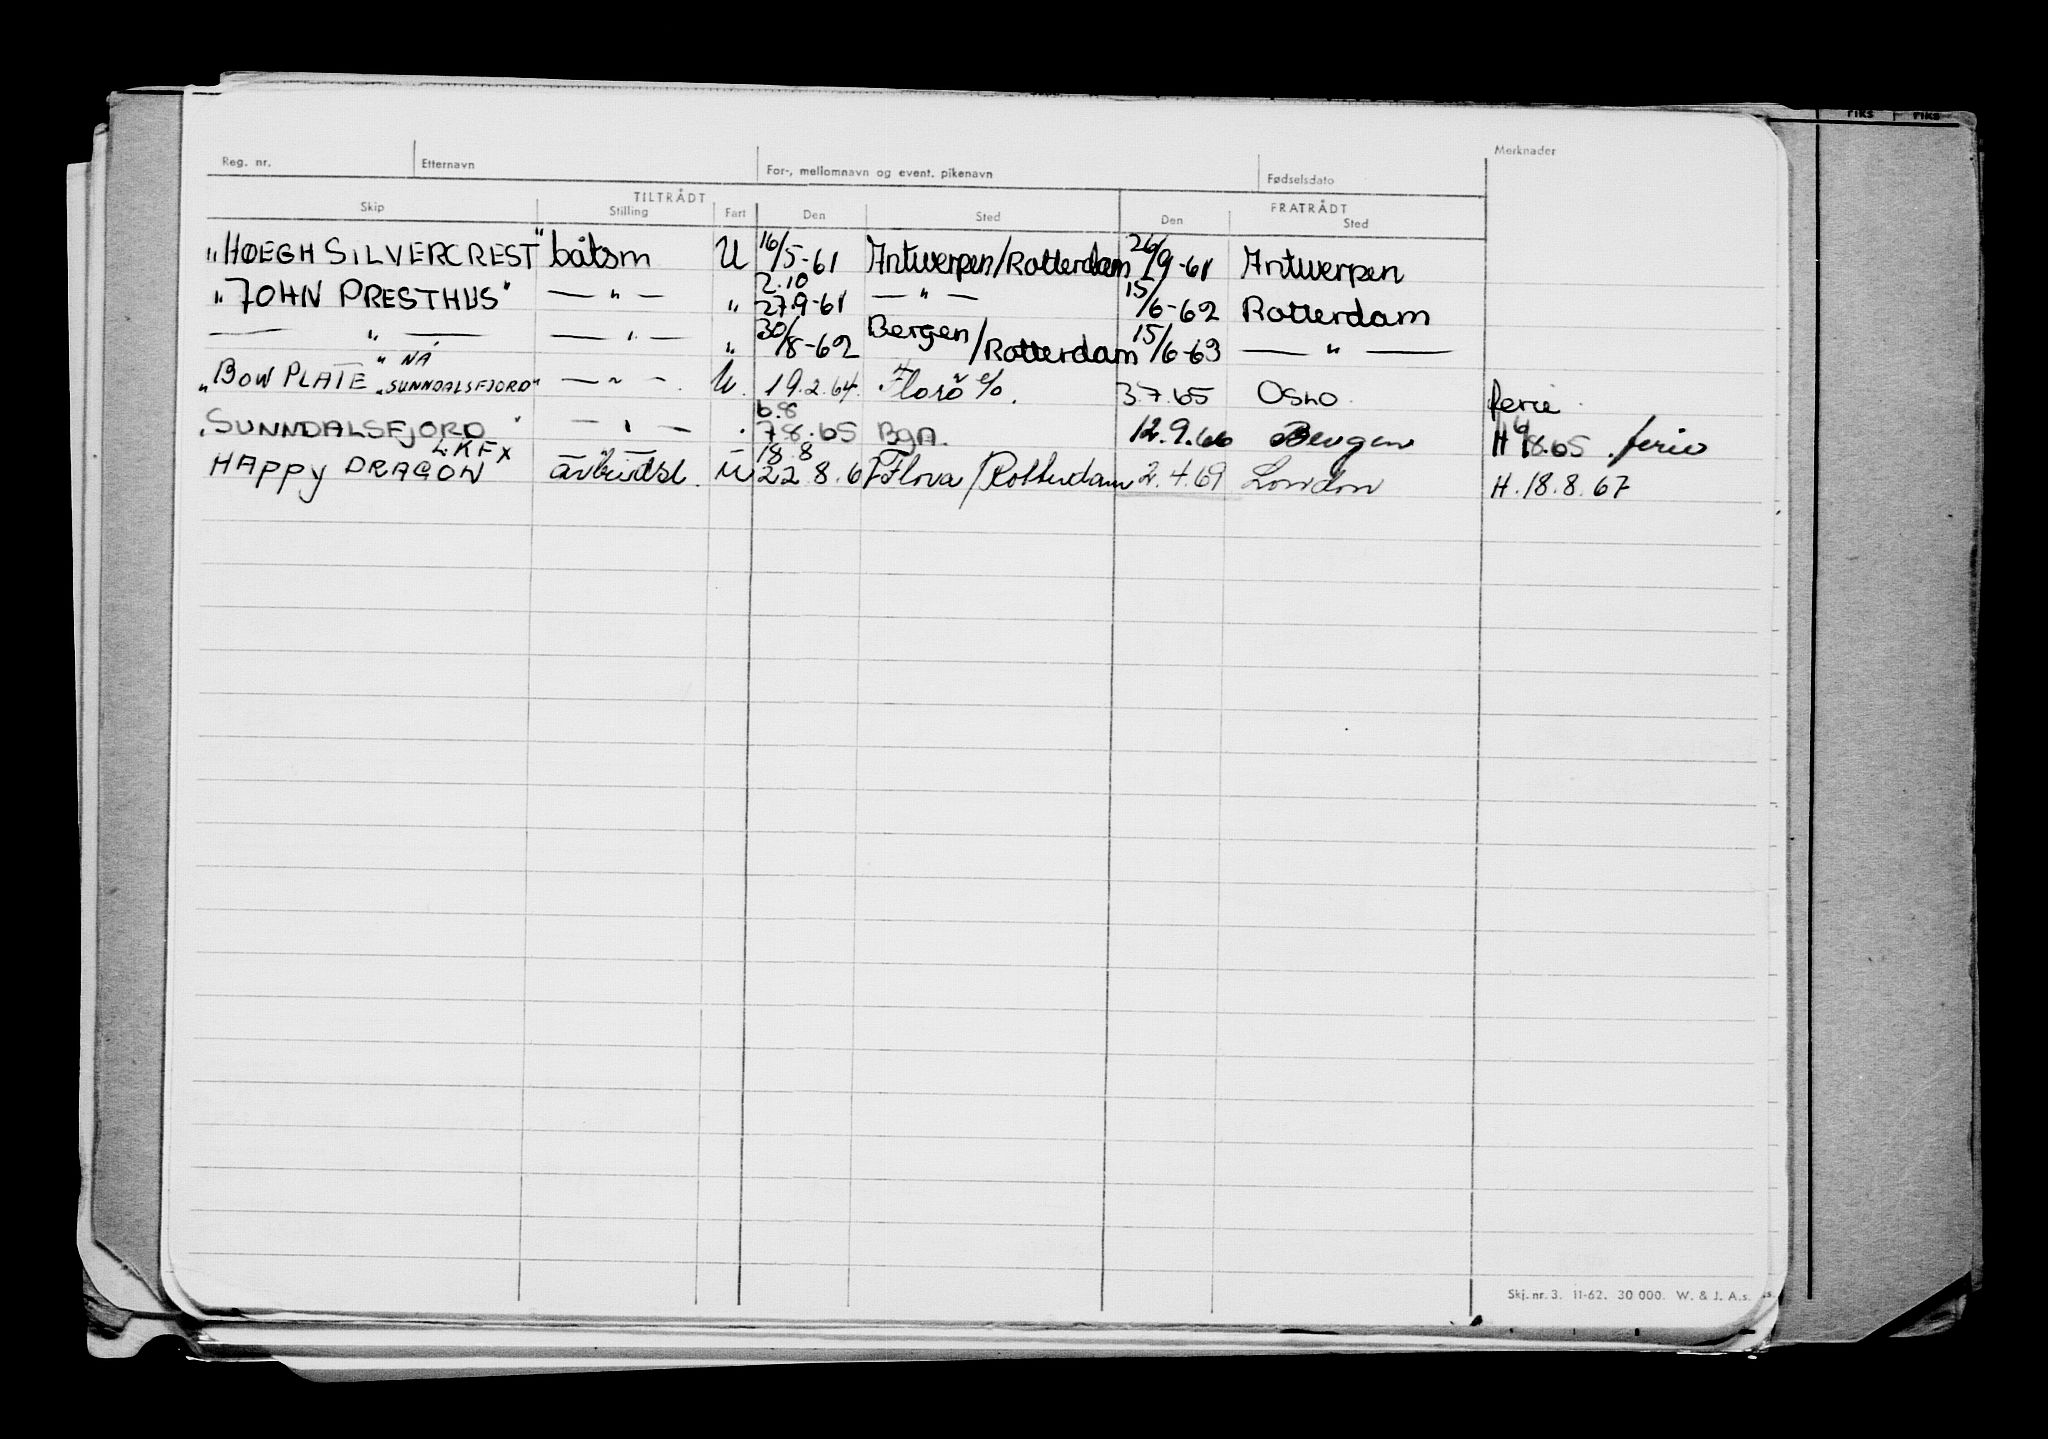 Fiks Fiks
Reg. nr. Etternavn For-, mellomnavn og event. pikenavn Fødselsdato Merknader
TILTRÅDT FRATRÅDT
Skip Stilling Fart Den Sted Den Sted
"HØEGH SILVERCREST" båtsm U 16/5-61 Antwerpen/Rotterdam 26/9-61 Antwerpen
2.10
"JOHN PRESTHUS" — " — " 27.9-61 — " — 15/6-62 Rotterdam
— " — — " — " 30/8-62 Bergen/Rotterdam 15/6-63 — " —
"BOW PLATE" NÅ "SUNNDALSFJORD" — " — U. 19.2.64. Florö e/o. 3.7.65 OSLO. ferie
6.8
"SUNNDALSFJORD" — " — " 7.8.65 Bgn. 12.9.66 Bergen H 18.65. ferie
LKFX 18.8
HAPPY DRAGON U 22.8.67 Florø/Rotterdam 2.4.69 London H.18.8.67
Skj. nr. 3. 11-62. 30 000. W. & J. A.s.